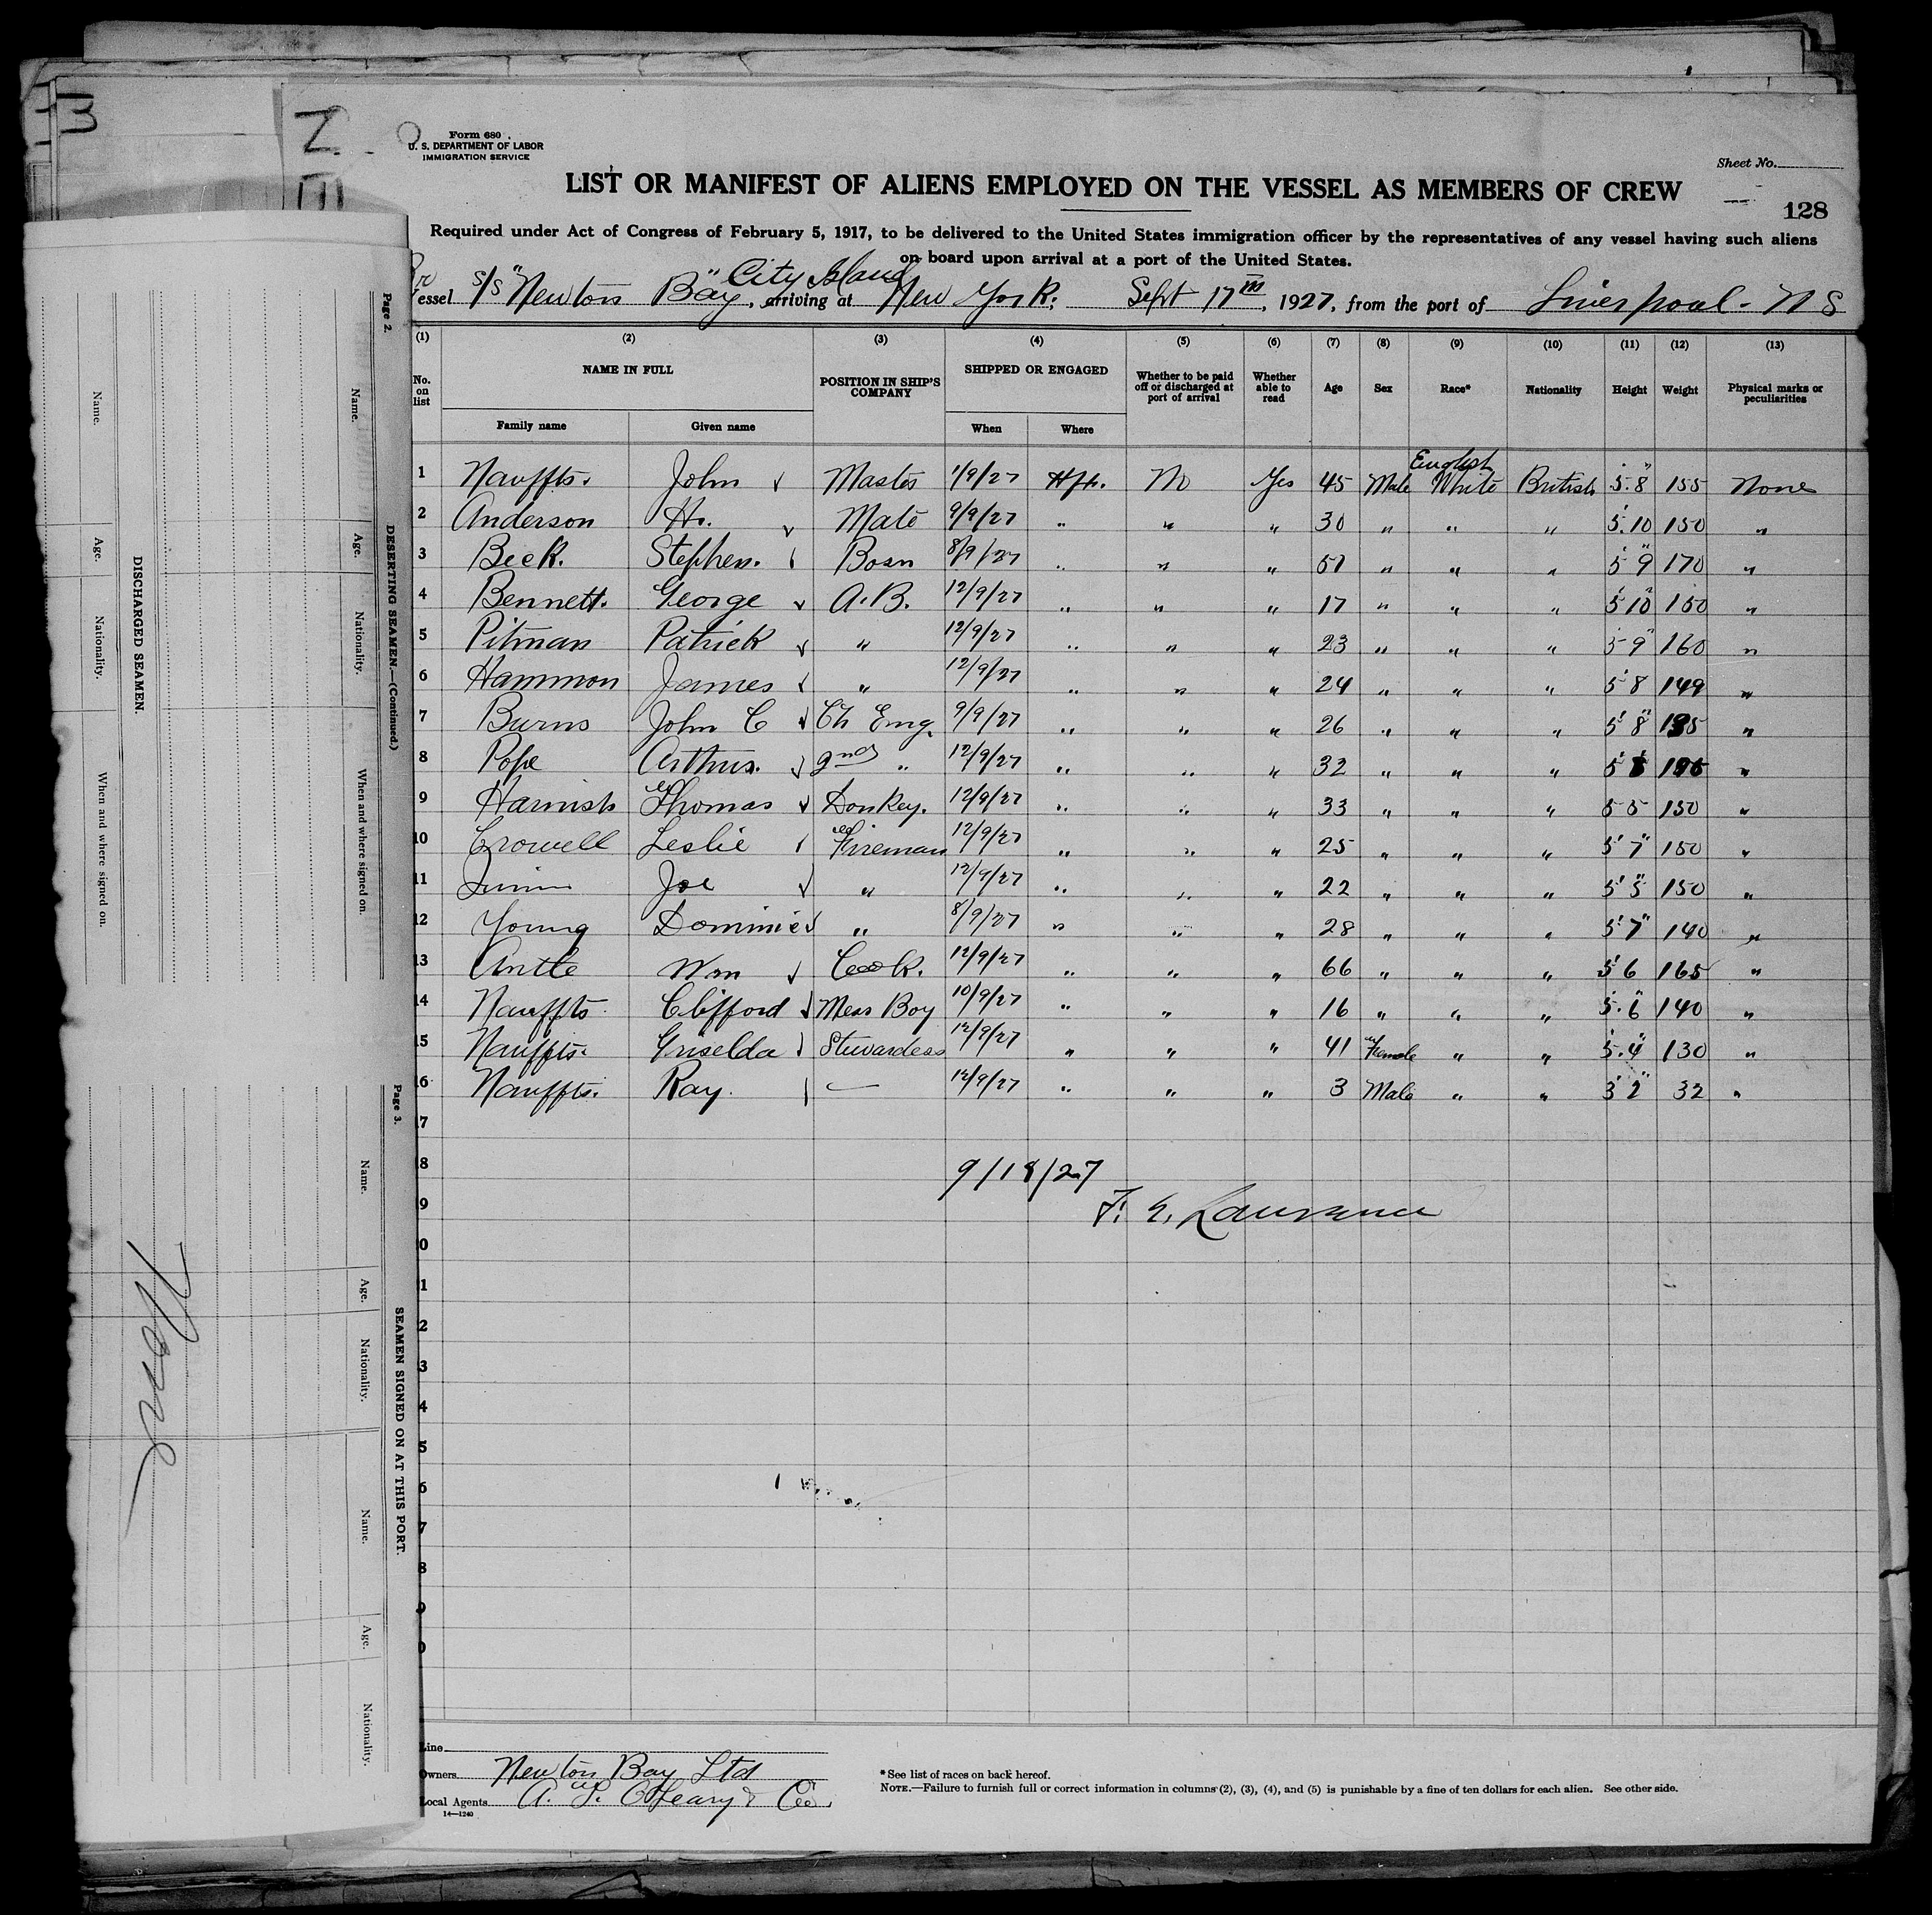 Form 680
U. S. DEPARTMENT OF LABOR
IMMIGRATION SERVICE
Sheet No.
LIST OR MANIFEST OF ALIENS EMPLOYED ON THE VESSEL AS MEMBERS OF CREW
128
Required under Act of Congress of February 5, 1917, to be delivered to the United States immigration officer by the representatives of any vessel having such aliens
on board upon arrival at a port of the United States.
City Island
essel S/S "Newton Bay", arriving at New York, Sept 17th, 1927, from the port of Liverpool - N S
(1) (2) (3) (4) (5) (6) (7) (8) (9) (10) (11) (12) (13)
No. on list NAME IN FULL POSITION IN SHIP'S COMPANY SHIPPED OR ENGAGED Whether to be paid off or discharged at port of arrival Whether able to read Age Sex Race* Nationality Height Weight Physical marks or peculiarities
Family name Given name When Where
1 Nauffts. John Master 1/9/27 Hfx. No Yes 45 Male English White British 5'.8" 155 None
2 Anderson H. Mate 9/9/27 " " " 30 " " " 5'.10 150 "
3 Beck. Stephen. Bosn 8/9/27 " " " 51 " " " 5'9" 170 "
4 Bennett. George A.B. 12/9/27 " " " 17 " " " 5'10" 150 "
5 Pitman Patrick " 12/9/27 " " " 23 " " " 5'9" 160 "
6 Hammon James " 12/9/27 " " " 24 " " " 5'8 149 "
7 Burns John C Ch Eng. 9/9/27 " " " 26 " " " 5'8" "
8 Pope Arthur. 2nd " 12/9/27 " " " 32 " " " "
9 Harnish Thomas Donkey. 12/9/27 " " " 33 " " " 5 5 150 "
10 Crowell Leslie Fireman 12/9/27 " " " 25 " " " 5'7" 150 "
11 Joe " 12/9/27 " " " 22 " " " 5'5" 150 "
12 Young Dominic " 8/9/27 " " " 28 " " " 5'7" 140 "
13 Antle Wm Cook. 12/9/27 " " " 66 " " " 5'6 165 "
14 Nauffts Clifford Mess Boy 10/9/27 " " " 16 " " " 5'.6" 140 "
15 Nauffts. Griselda Stewardess 12/9/27 " " " 41 Female " " 5'.4" 130 "
16 Nauffts. Ray. — 12/9/27 " " " 3 Male " " 3'2" 32 "
17
8
9/18/27
9
F. E. Lawrence
0
1
2
3
4
5
6
7
8
9
0
Line
Owners Newton Bay Ltd
Local Agents A. J. O'Leary & Co.
14—1240
*See list of races on back hereof.
NOTE.—Failure to furnish full or correct information in columns (2), (3), (4), and (5) is punishable by a fine of ten dollars for each alien. See other side.
Page 2.
DESERTING SEAMEN.—(Continued.)
Name. Age. Nationality. When and where signed on.
DISCHARGED SEAMEN.
Name. Age. Nationality. When and where signed on.
Page 3.
SEAMEN SIGNED ON AT THIS PORT.
Name. Age. Nationality. Name. Age. Nationality.
None